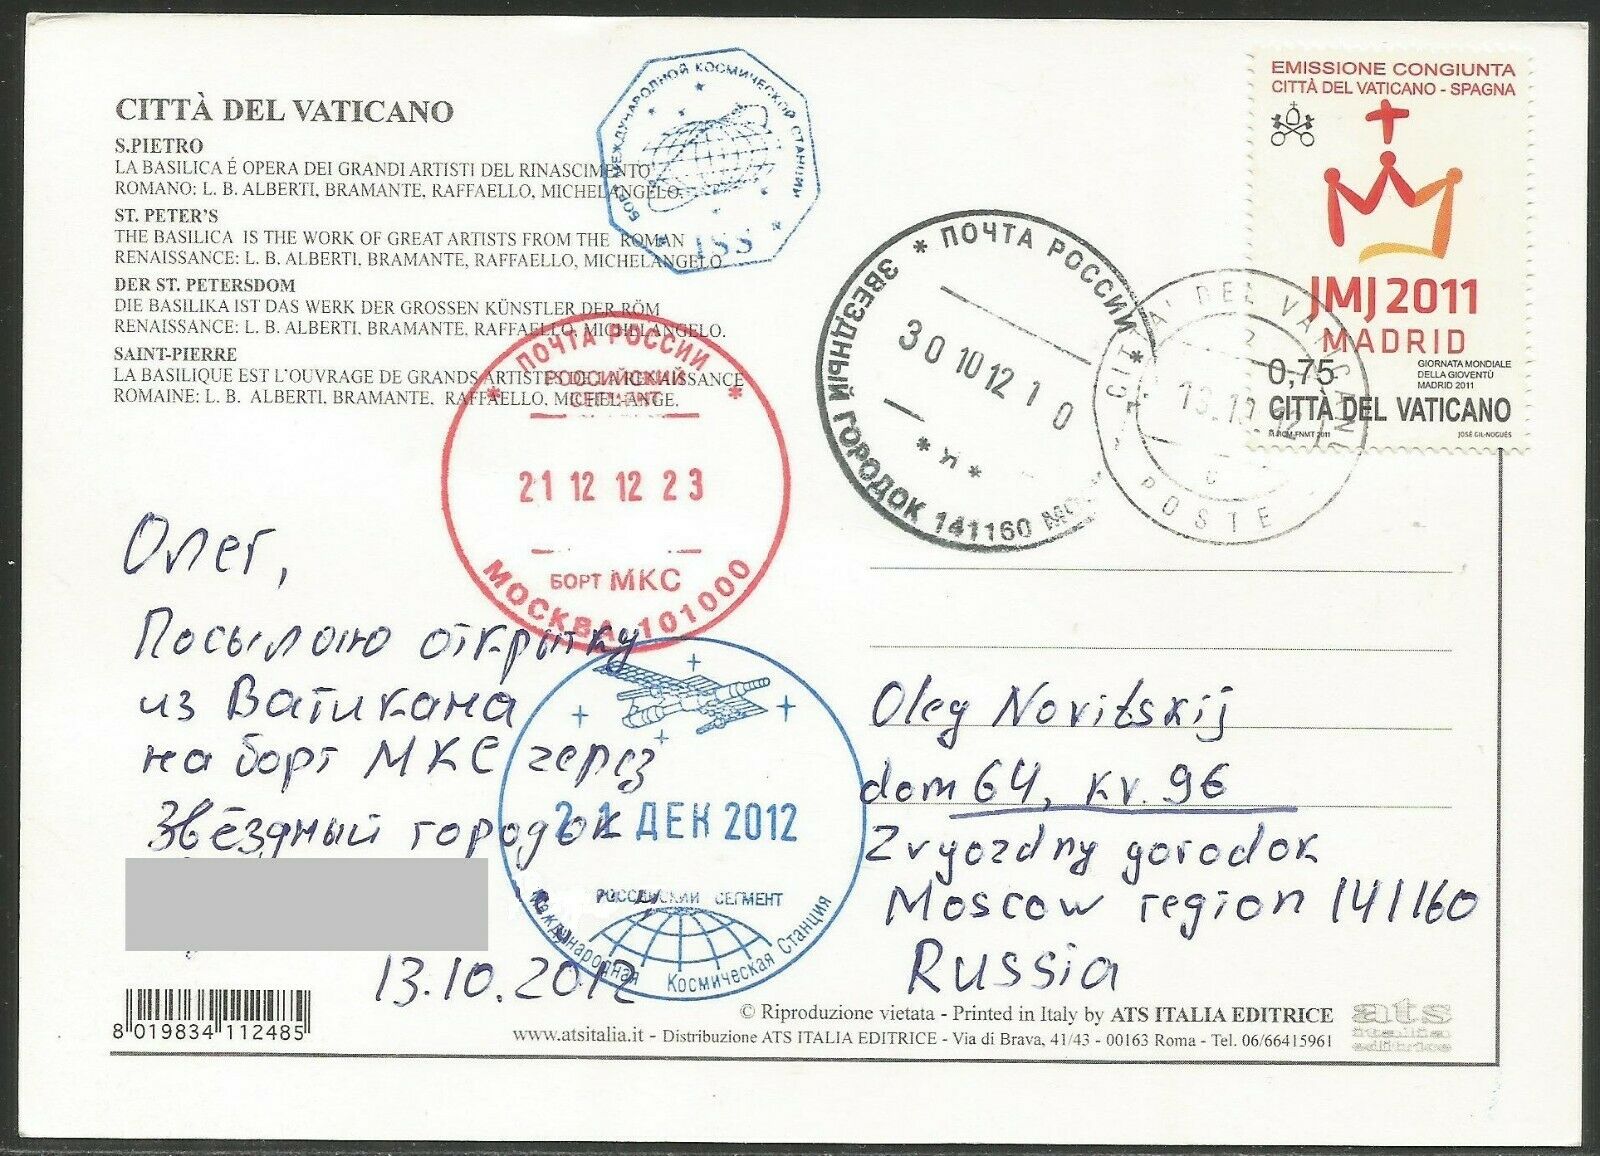 CITTÀ DEL VATICANO
S.PIETRO
LA BASILICA É OPERA DEI GRANDI ARTISTI DEL RINASCIMENTO
ROMANO: L. B. ALBERTI, BRAMANTE, RAFFAELLO, MICHELANGELO.
ST. PETER'S
THE BASILICA IS THE WORK OF GREAT ARTISTS FROM THE ROMAN
RENAISSANCE: L. B. ALBERTI, BRAMANTE, RAFFAELLO, MICHELANGELO
DER ST. PETERSDOM
DIE BASILIKA IST DAS WERK DER GROSSEN KÜNSTLER DER RÖM
RENAISSANCE: L. B. ALBERTI, BRAMANTE, RAFFAELLO, MICHELANGELO.
SAINT-PIERRE
LA BASILIQUE EST L'OUVRAGE DE GRANDS ARTISTES DE LA RENAISSANCE
ROMAINE: L. B. ALBERTI, BRAMANTE, RAFFAELLO, MICHELANGE.
БОРТ МЕЖДУНАРОДНОЙ КОСМИЧЕСКОЙ СТАНЦИИ
ISS
EMISSIONE CONGIUNTA
CITTÀ DEL VATICANO - SPAGNA
JMJ 2011
MADRID
0,75
GIORNATA MONDIALE
DELLA GIOVENTÙ
MADRID 2011
CITTÀ DEL VATICANO
JOSÉ GIL-NOGUÉS
* ПОЧТА РОССИИ *
30 10 12 10
* Я *
ЗВЕЗДНЫЙ ГОРОДОК 141160
CITTA DEL VATICANO
POSTE
* ПОЧТА РОССИИ *
РОССИЙСКИЙ
СЕГМЕНТ
21 12 12 23
БОРТ МКС
МОСКВА 101000
Олег,
Посылаю открытку
из Ватикана
на борт МКС через
Звёздный городок
13.10.2012
21 ДЕК 2012
РОССИЙСКИЙ СЕГМЕНТ
Международная Космическая Станция
Oleg Novitskij
dom 64, kv. 96
Zvyozdny gorodok
Moscow region 141160
Russia
8 019834 112485
© Riproduzione vietata - Printed in Italy by ATS ITALIA EDITRICE
www.atsitalia.it - Distribuzione ATS ITALIA EDITRICE - Via di Brava, 41/43 - 00163 Roma - Tel. 06/66415961
ats
italia
editrice